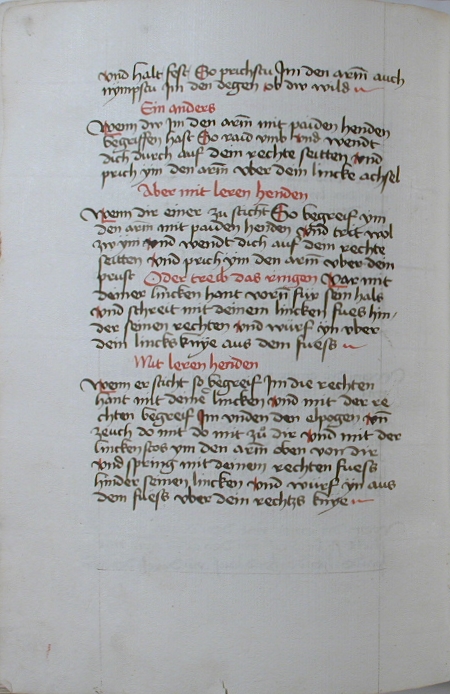 vnd halt fest So prichstu Im den arm auch
nympstu Im den degen ob dw wild
Ein anders
Wenn dw Im den arm mit paiden henden
begriffen hast So raid vmb vnd wendt
dich durch auf dein rechte seitten vnd
prich ym den arm vber dein lincke achsel
Aber mit leren henden
Wenn dir einer zu sticht So begreif ym
den arm mit paiden henden vnd trit wol
zw ym vnd wendt dich auf dein rechte
seitten vnd prich ym den arm vber dein
prust Oder treib das ringen Var mit
deiner lincken hant vorñ für sein hals
vnd schreit mit deinem lincken fues hin/
der seinen rechten vnd würf yn vber
dein lincks knye aus dem fuess
Mit leren henden
Wenn er sticht so begreif Im die rechten
hant mit deine lincken vnd mit der re
chten begreif Im vnden den elpogen vñ
zeuch do mit do mit zů dir vnd mit der
lincken stos ym den arm oben von dir
vnd spring mit deinem rechten fuess
hinder seinen lincken vnd würf yn aus
dem fuess vber dein rechts knye